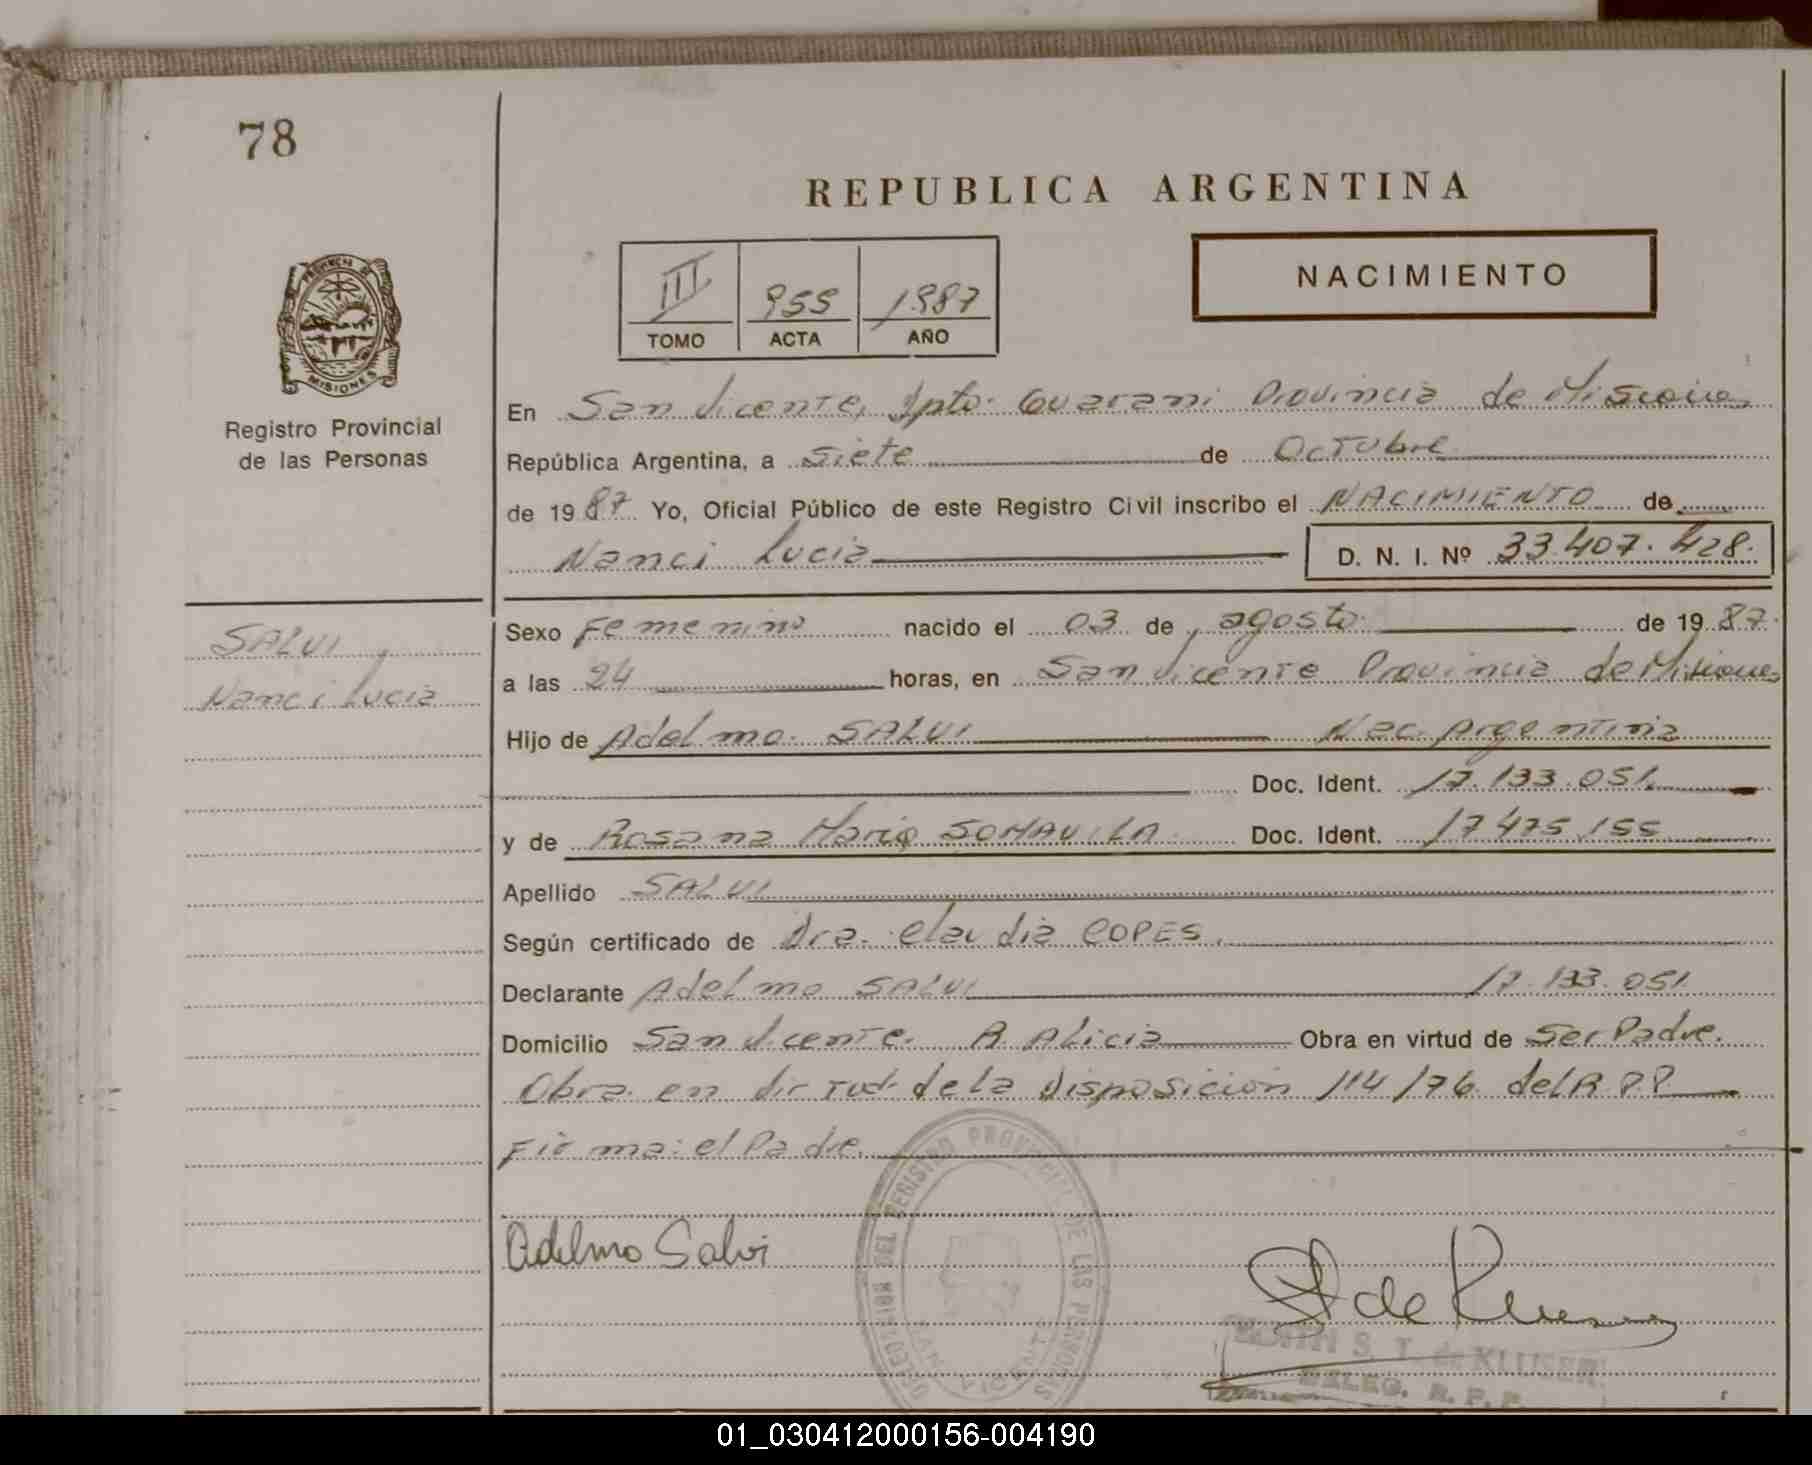 78
REPUBLICA ARGENTINA
NACIMIENTO
III 955 1987
TOMO ACTA AÑO
PROVINCIA DE
MISIONES
Registro Provincial
de las Personas
En San Vicente, Dpto. Guarani Provincia de Misiones
República Argentina, a siete de Octubre
de 1987 Yo, Oficial Público de este Registro Civil inscribo el NACIMIENTO de
Nanci Lucia D. N. I. Nº 33.407.428.
SALVI
Nanci Lucia
Sexo Femenino nacido el 03 de agosto de 1987.
a las 24 horas, en San Vicente Provincia de Misiones
Hijo de Adelmo SALVI Nac. Argentina
Doc. Ident. 17.133.051.
y de Rosana Maria SOMAVILA Doc. Ident. 17475.155
Apellido SALVI
Según certificado de Dra. Claudia COPES.
Declarante Adelmo SALVI 17.133.051.
Domicilio San Vicente. A. Alicia Obra en virtud de Ser Padre.
Obra en virtud de la disposición 114/76 del R.P.P.
Firma: el Padre.
Adelmo Salvi
DELEGACION DEL REGISTRO PROVINCIAL DE LAS PERSONAS
SAN VICENTE
S. T. de KLUSER
DELEG. R. P. P.
01_030412000156-004190